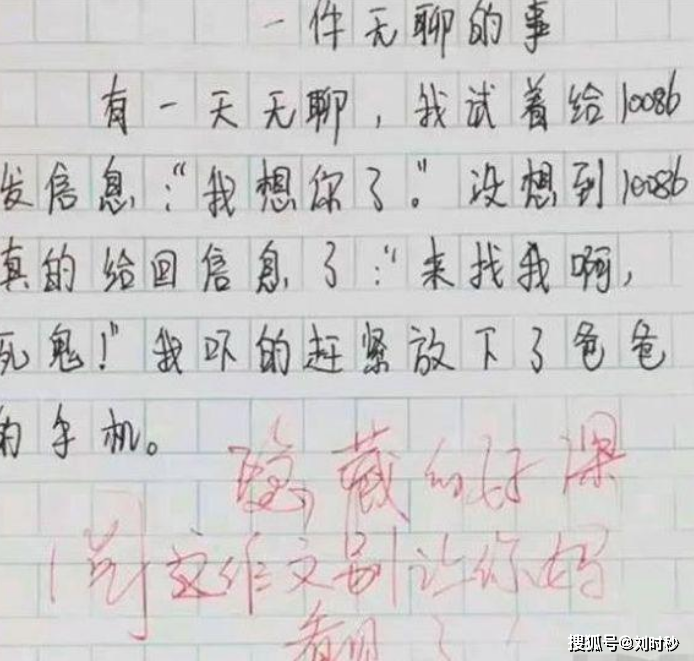 一件无聊的事
有一天无聊，我试着给10086
发信息：“我想你了。”没想到10086
真的给回信息了：“来找我啊，
死鬼！”我吓的赶紧放下了爸爸
的手机。
隐藏的好深
这作文别让你妈
看见了！
搜狐号@刘时秒